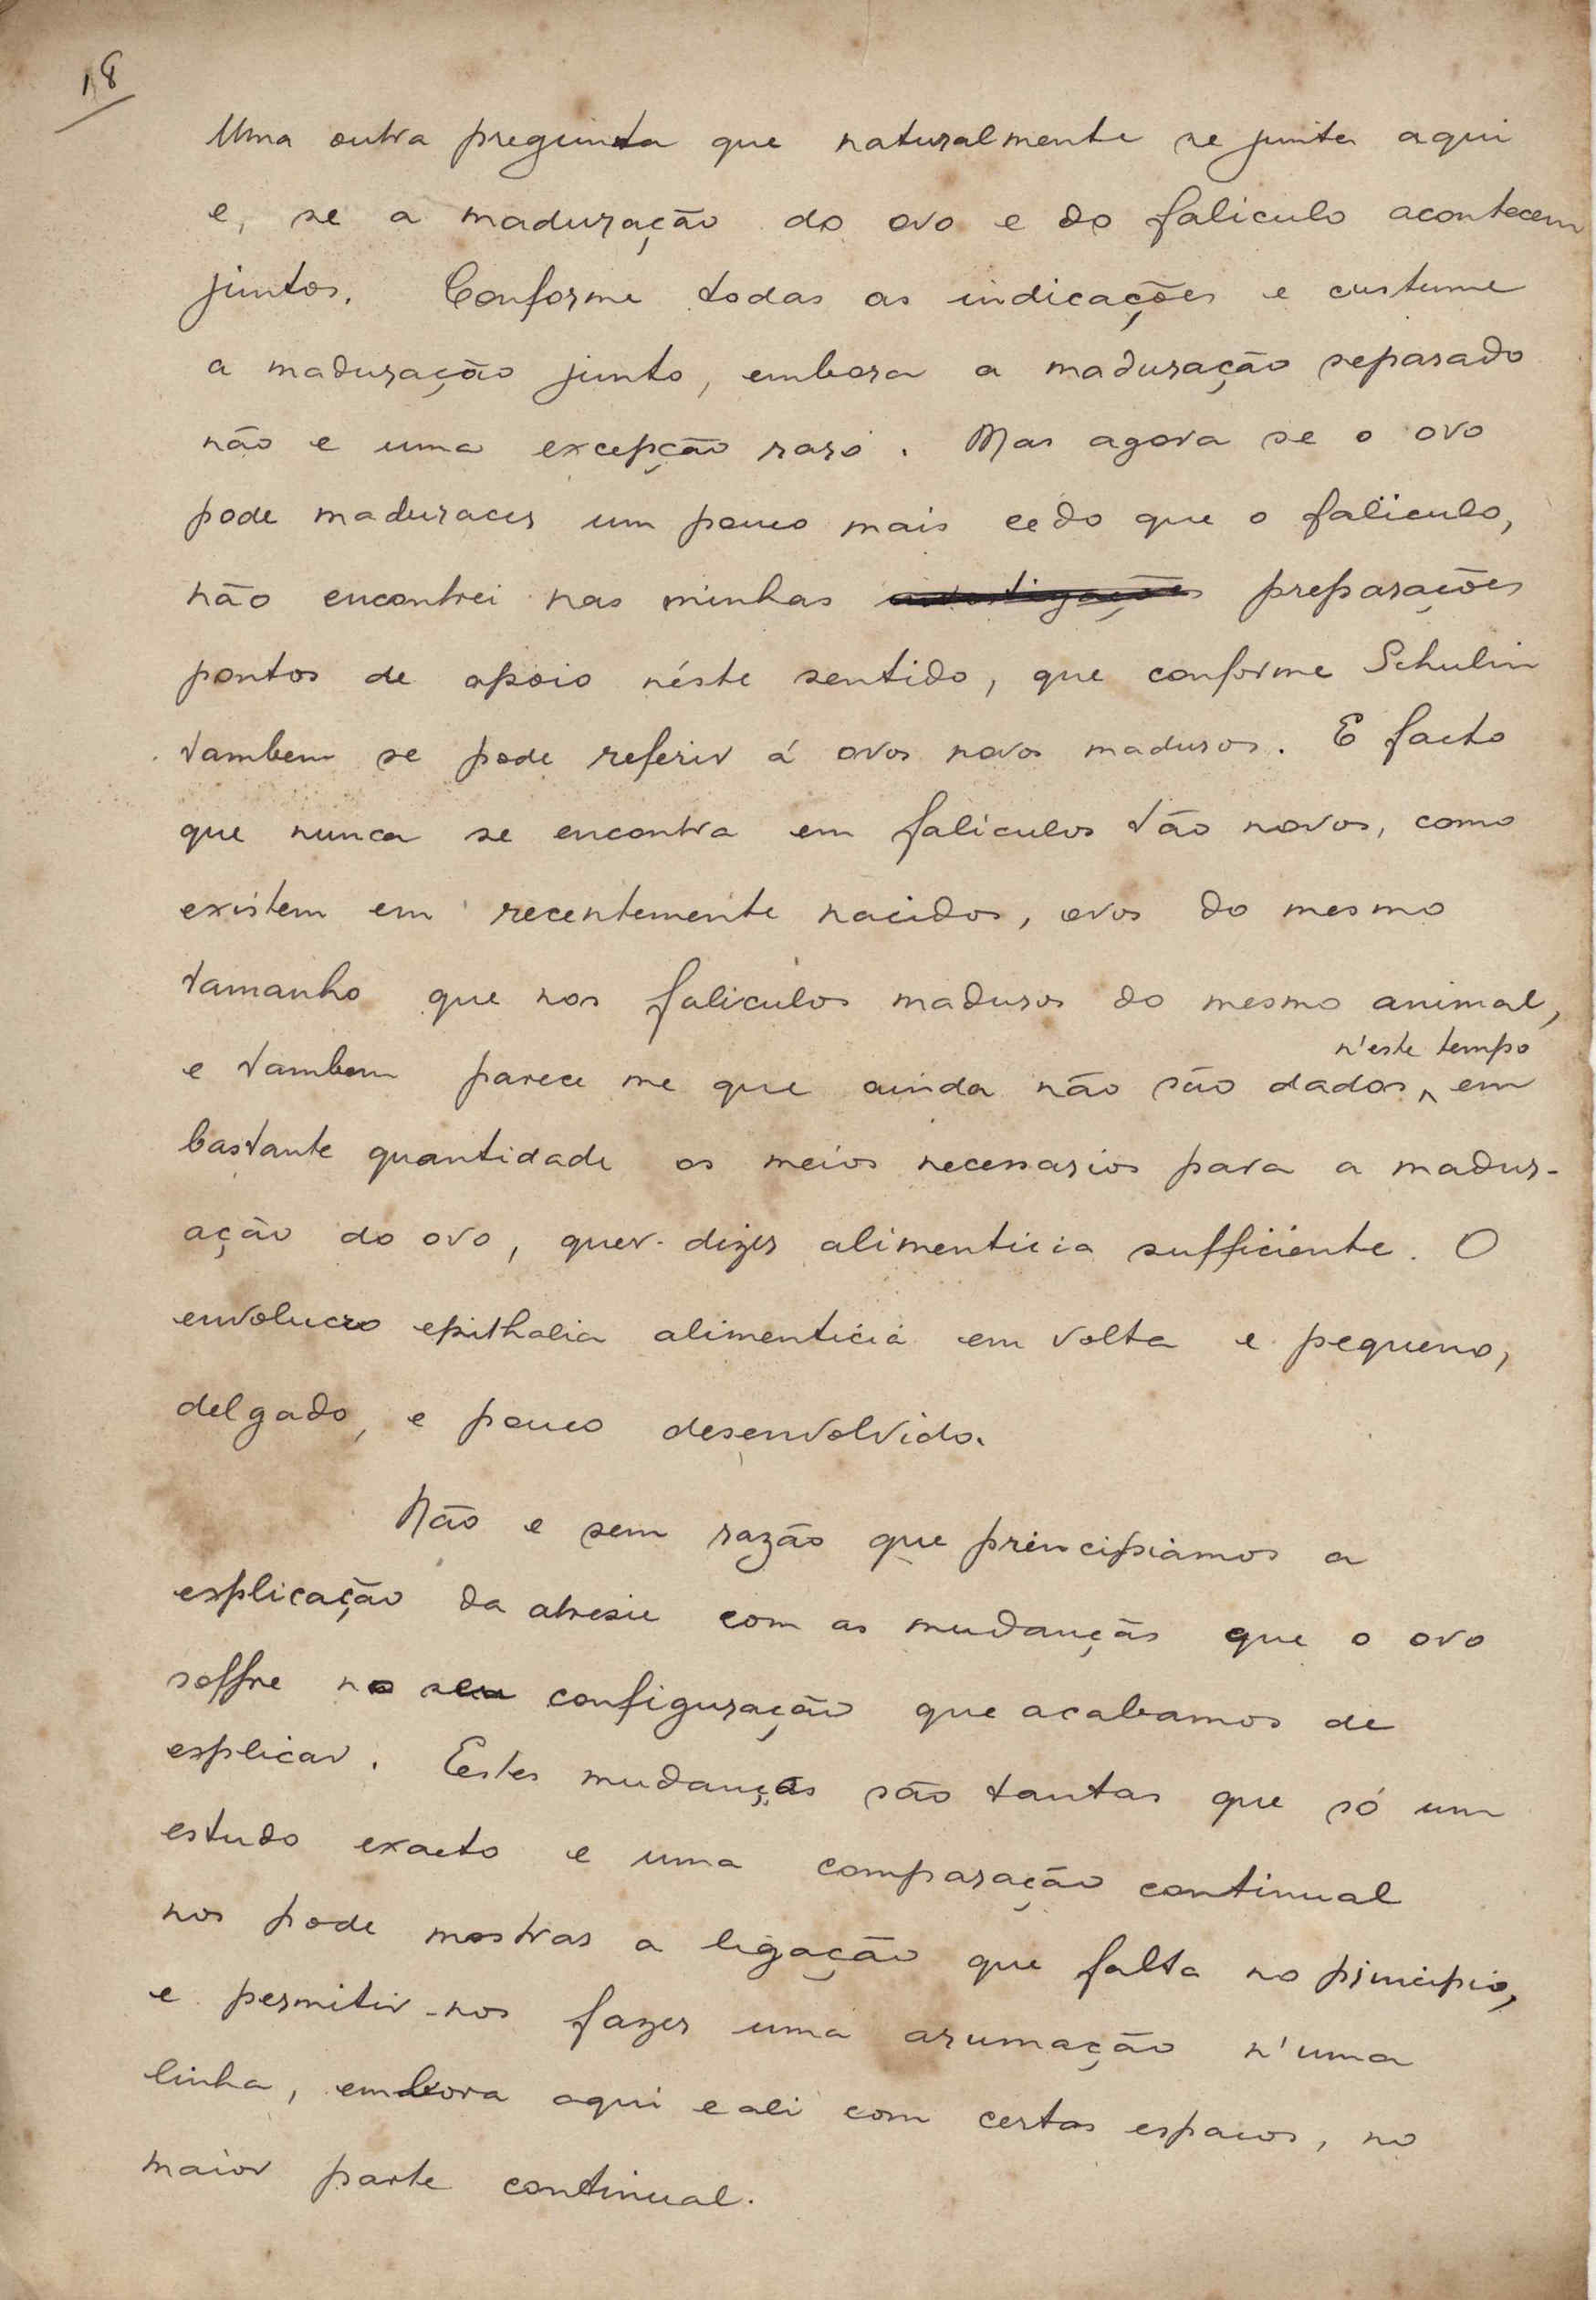 18
Uma outra pregunta que naturalmente se junta aqui
e, se a maduração do ovo e do faliculo acontecem
juntos. Conforme todas as indicações e custume
a maduração junto, embora a maduração separado
não e uma excepção raro. Mas agora se o ovo
pode maduracer um pouco mais cedo que o faliculo,
não encontrei nas minhas preparações
pontos de apoio néste sentido, que conforme Schulin
tambem se pode referir á ovos novos maduros. E facto
que nunca se encontra em faliculos tão novos, como
existem em recentemente nacidos, ovos do mesmo
tamanho que nos faliculos maduros do mesmo animal,
n'este tempo
e tambem parece me que ainda não são dados, em
bastante quantidade os meios necessarios para a madur-
ação do ovo, quer-dizer alimenticia sufficiente. O
envolucro epithalia alimenticia em volta e pequeno,
delgado, e pouco desenvolvido.
Não e sem razão que principiamos a
esplicação da atresie com as mudanças que o ovo
soffre na sua configuração que acabamos de
esplicar. Estes mudanças são tantas que só um
estudo exacto e uma comparação continual
nos pode mostrar a ligação que falta no principio,
e permitir-nos fazer uma arumação n'uma
linha, embora aqui e ali com certos espacos, no
maior parte continual.